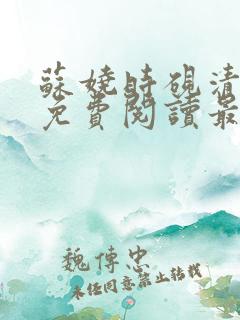 蘇嬈時硯清
免費閱讀最
魏傳忠
未經同意禁止轉載